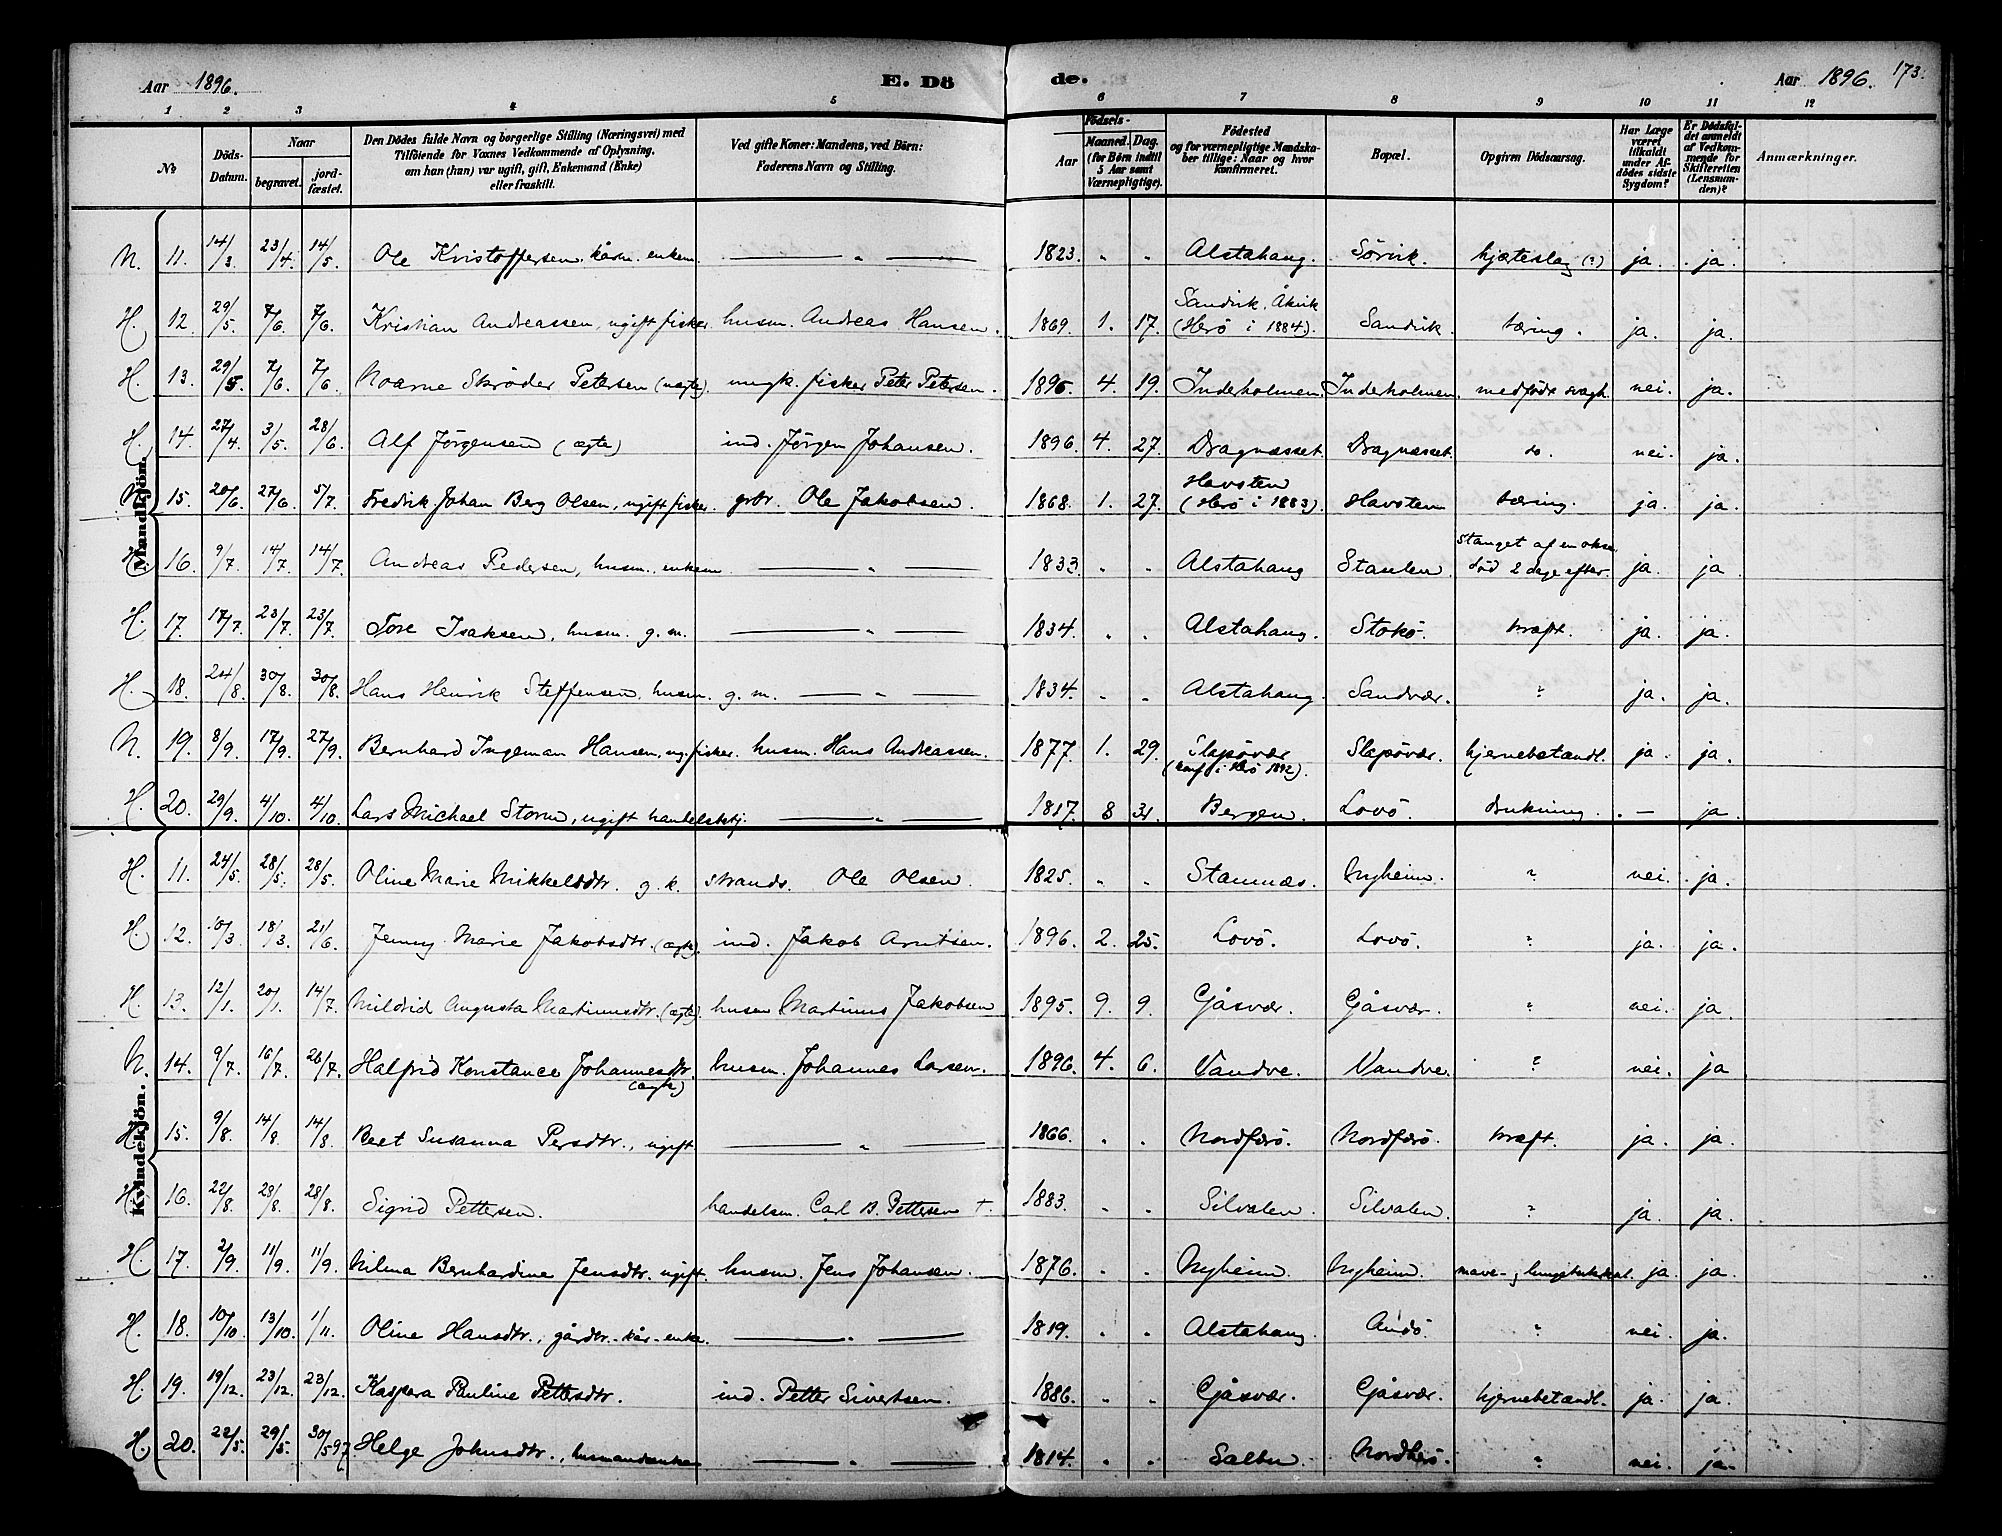 Aar 1896.
E. Dö
de.
Aar 1896.
173.
1 2 3 4 5 6 7 8 9 10 11 12
No
Döds-Datum.
Naar
begravet.
jord-fæstet.
Den Dödes fulde Navn og borgerlige Stilling (Næringsvei) med
Tilföiende for Voxnes Vedkommende af Oplysning,
om han (hun) var ugift, gift, Enkemand (Enke)
eller fraskilt.
Ved gifte Koner: Mandens, ved Börn:
Faderens Navn og Stilling.
Födsels-
Aar
Maaned. Dag.
(for Börn indtil
5 Aar samt
Værnepligtige).
Födested
og for værnepligtige Mandska-
ber tillige: Naar og hvor
konfirmeret.
Bopæl.
Opgiven Dödsaarsag.
Har Læge
været
tilkaldt
under Af-
dödes sidste
Sygdom?
Er Dödsfal-
det anmeldt
af Vedkom-
mende for
Skifteretten
(Lensman-
den)?
Anmærkninger.
Mandkjön.
N. 11. 14/3. 23/4. 14/5. Ole Kristoffersen, kårm. enkem. — " — 1823. " " Alstahaug. Sørvik. hjerteslag (?) ja. ja.
H. 12. 29/5. 7/6. 7/6. Kristian Andreassen, ugift fisker. husm. Andreas Hansen. 1869. 1. 17. Sandvik, Åkvik (Herö i 1884). Sandvik. tæring. ja. ja.
H. 13. 29/5. 7/6. 7/6. Skrøder Petersen (uægte) ungk. fisker Peter Petersen. 1896. 4. 19. Inderholmen. Inderholmen. medfödt svagh. nei. ja.
H. 14. 27/4. 3/5. 28/6. Alf Jørgensen (ægte) ind. Jørgen Johansen. 1896. 4. 27. Dragnæsset. Dragnæsset. do. nei. ja.
N. 15. 20/6. 27/6. 5/7. Fredrik Johan Berg Olsen, ugift fisker. grbr. Ole Jakobsen. 1868. 1. 27. Havsten (Herö i 1883). Havsten tæring. ja. ja.
H. 16. 9/7. 14/7. 14/7. Andreas Pedersen, husm. enkem — " — 1833. " " Alstahaug Staulen. Stanget af en okse, död 2 dage efter. ja. ja
H. 17. 17/7. 23/7. 23/7. Tore Isaksen, husm. g. m. — " — 1834. " " Alstahaug. Stokö. kræft. ja. ja.
H. 18. 24/8. 30/8. 30/8. Hans Henrik Steffensen, husm. g. m. — " — 1834. " " Alstahaug. Sandvær. ? ja. ja.
N. 19. 8/9. 17/9. 27/9. Bernhard Ingeman Hansen, ug. fisker. husm. Hans Andreassen. 1877. 1. 29. Slapövær (konf. i Herö 1892). Slapövær. hjernebetændl. ja. ja.
H. 20. 29/9. 4/10. 4/10. Lars Michael Storm, ugift handelsbetj. — " — 1817. 8 31. Bergen. Lovö. Drukning. — ja.
Kvindekjön.
H. 11. 24/5. 28/5. 28/5. Oline Marie Mikkelsdtr. g. k. strands. Ole Olsen. 1825. " " Stamnæs. Nyheim. ? nei. ja.
H. 12. 10/3. 18/3. 21/6. Jenny Marie Jakobsdtr. (ægte). ind. Jakob Arntsen. 1896. 2. 25. Lovö. Lovö. ? ja. ja.
H. 13. 12/1. 20/1. 14/7. Mildrid Augusta Martinusdtr. (ægte). husm Martinus Jakobsen 1895. 9. 9. Gåsvær. Gåsvær. ? nei. ja
N. 14. 9/7. 16/7. 26/7. Halfrid Konstance Johannesdtr. (ægte) husm. Johannes Larsen. 1896. 4. 6. Vandve. Vandve. ? nei. ja
H. 15. 9/8. 14/8. 14/8. Beet Susanna Persdtr., ugift — " — 1866. " " Nordfærö. Nordfærö. kræft. ja. ja.
H. 16. 22/8. 28/8. 28/8. Sigrid Pettersen. handelsm. Carl B. Pettersen † 1883. " " Silvalen. Silvalen. ? ja. ja.
H. 17. 2/9. 11/9. 11/9. Milma Bernhardine Jensdtr. ugift. husm. Jens Johansen. 1876. " " Nyheim. Nyheim. mave- g lungetuberkul. ja. ja.
H. 18. 10/10. 13/10. 1/11. Oline Hansdtr., gårdtr.-kår-enke. — " — 1819. " " Alstahaug. Andö. ? nei. ja.
H. 19. 19/12. 23/12. 23/12. Kaspara Pauline Pettersdtr. ind. Petter Sivertsen. 1886. " " Gåsvær. Gåsvær. hjernebetændl. ja. ja.
H. 20. 22/5. 29/5. 30/5 97. Helge Johnsdtr., husmandsenke — " — 1814. " " Salten. Nordherö. ? nei. ja.